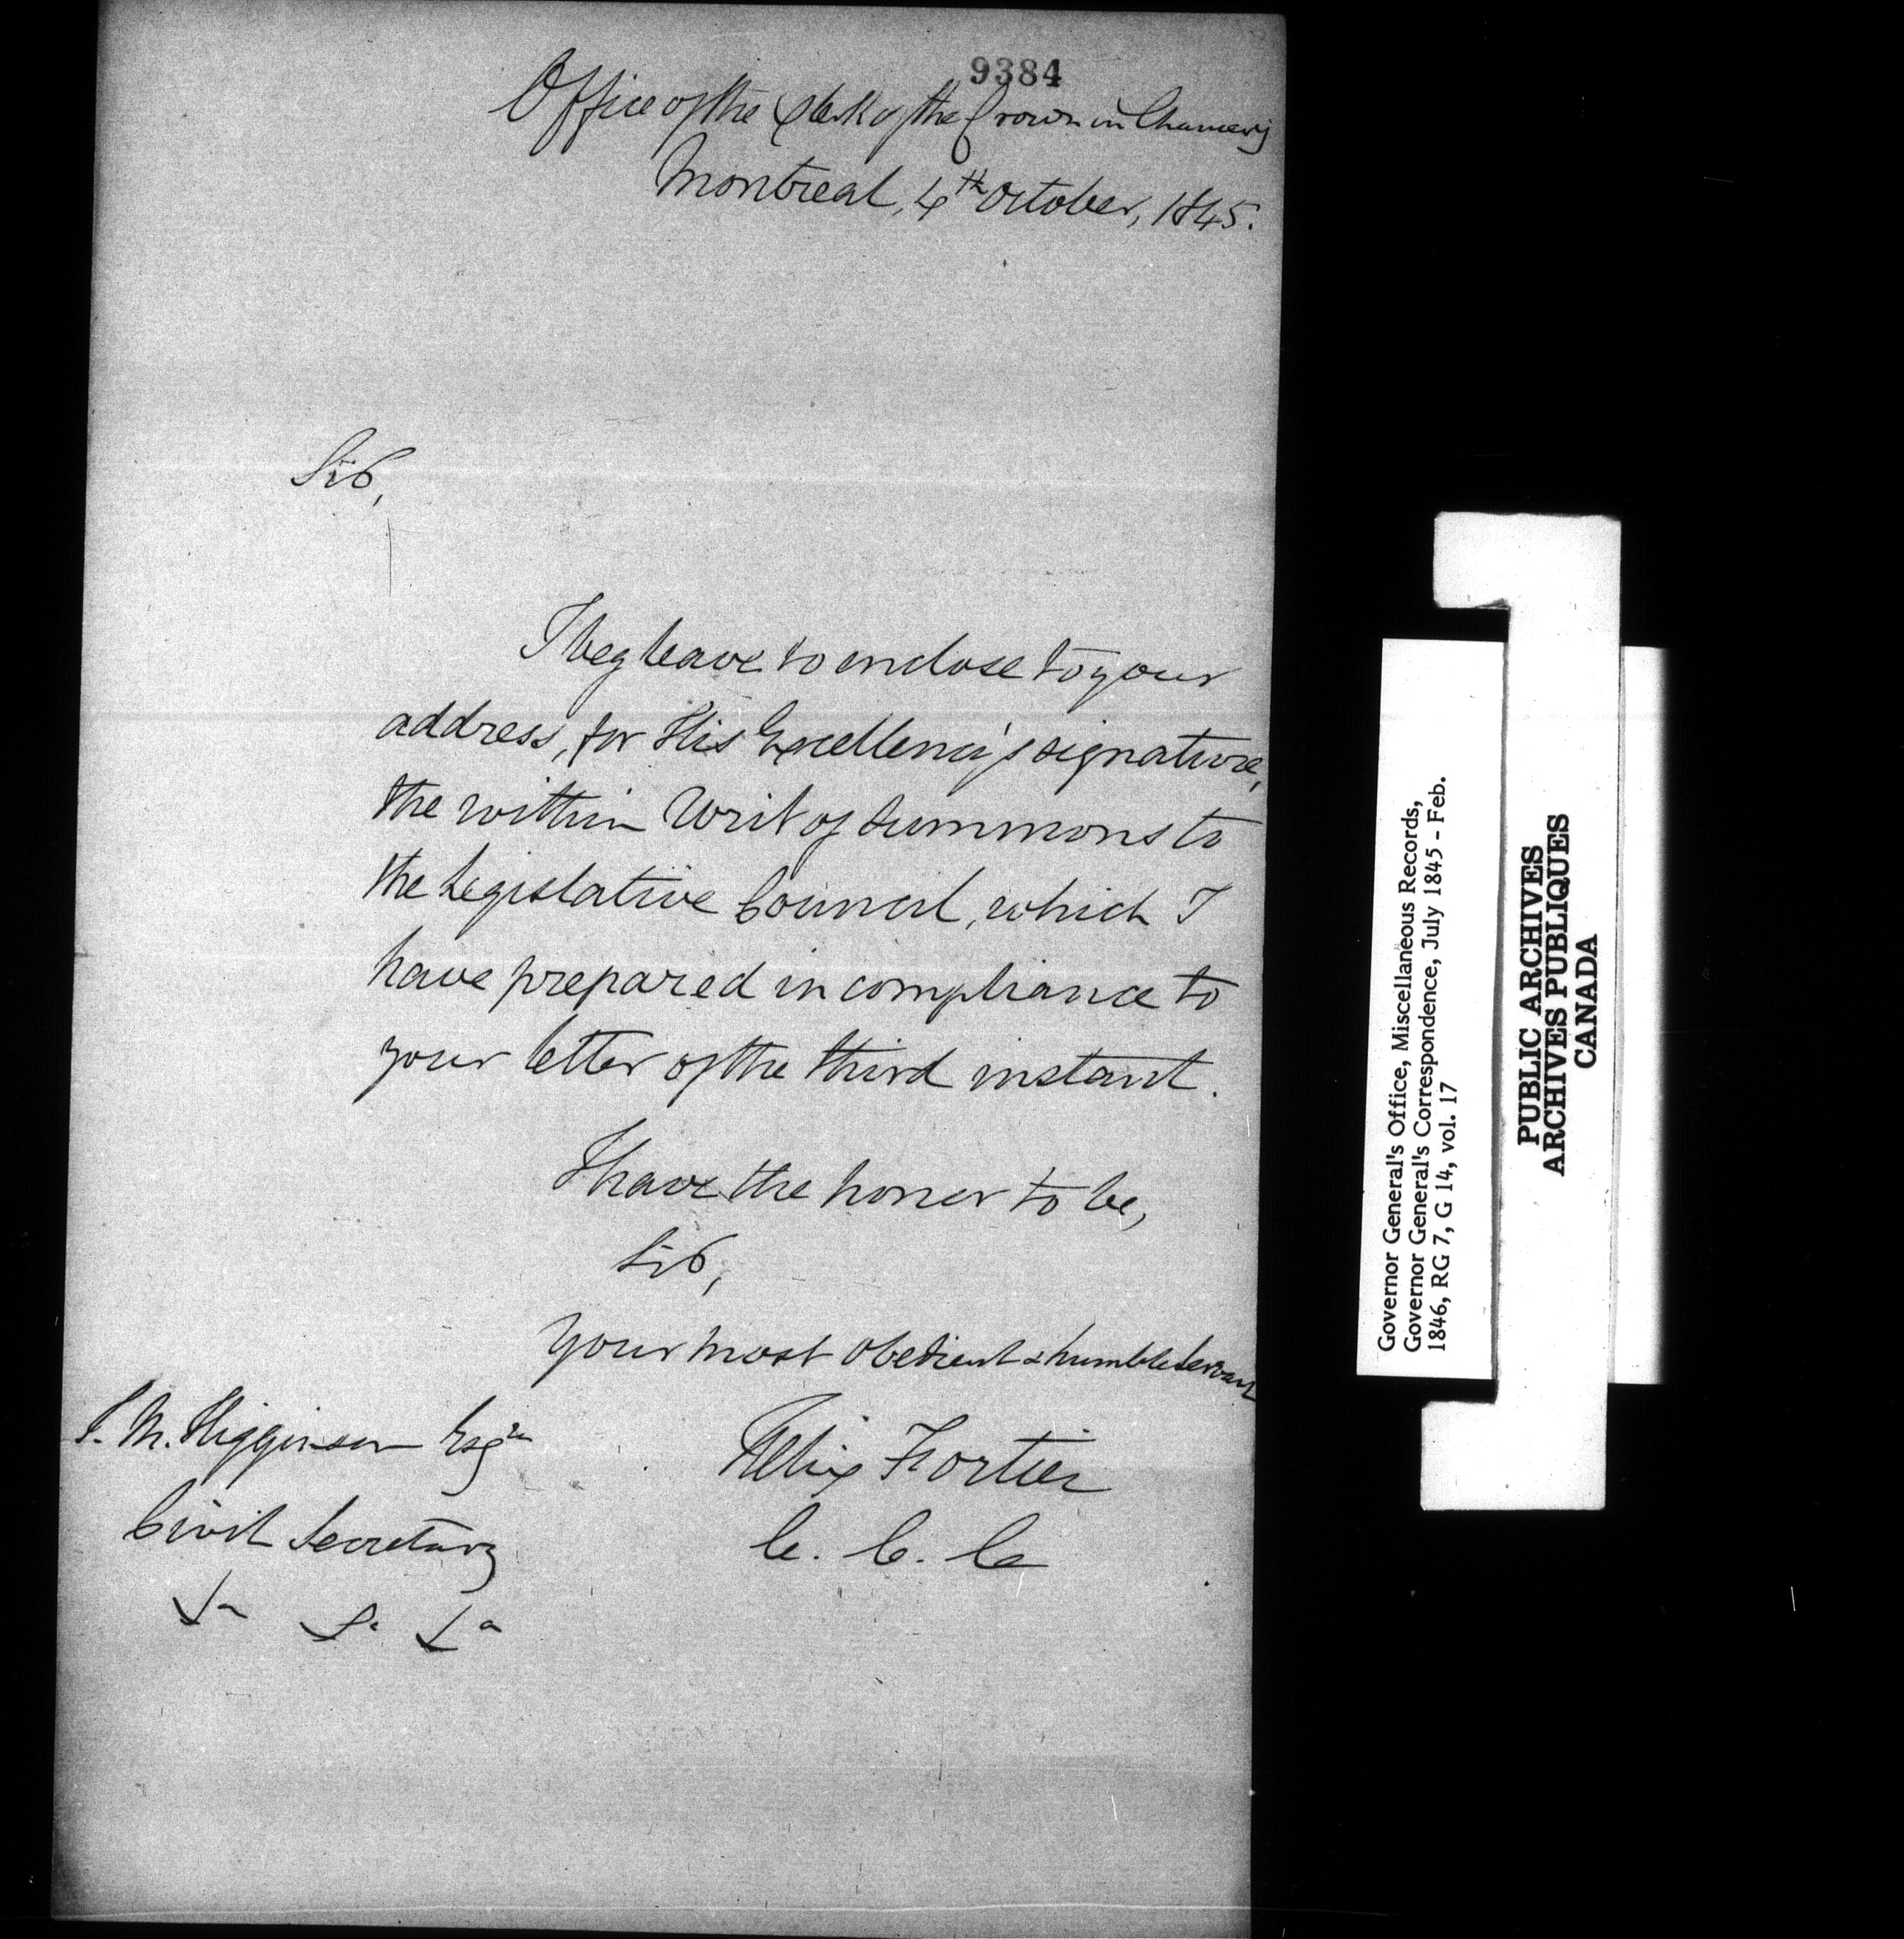 9384
Office of the Clerk of the Crown in Chancery
Montreal, 4th October, 1845.
Sir,
I beg leave to enclose to your
address, for His Excellency's signature,
the within Writ of Summons to
the Legislative Council, which I
have prepared in compliance to
your letter of the third instant.
I have the honor to be,
Sir,
Your most obedient & humble servant
J. M. Higginson Esqre
Civil Secretary
Felix Fortier
C. C. C
Governor General's Office, Miscellaneous Records,
Governor General's Correspondence, July 1845 - Feb.
1846, RG 7, G 14, vol. 17
PUBLIC ARCHIVES
ARCHIVES PUBLIQUES
CANADA